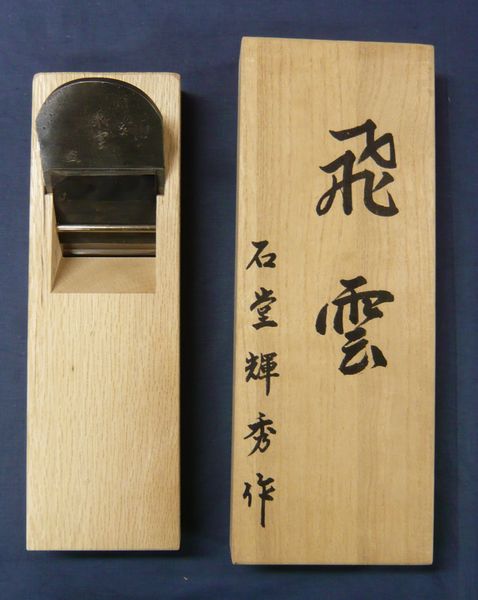 飛雲
石堂輝秀作